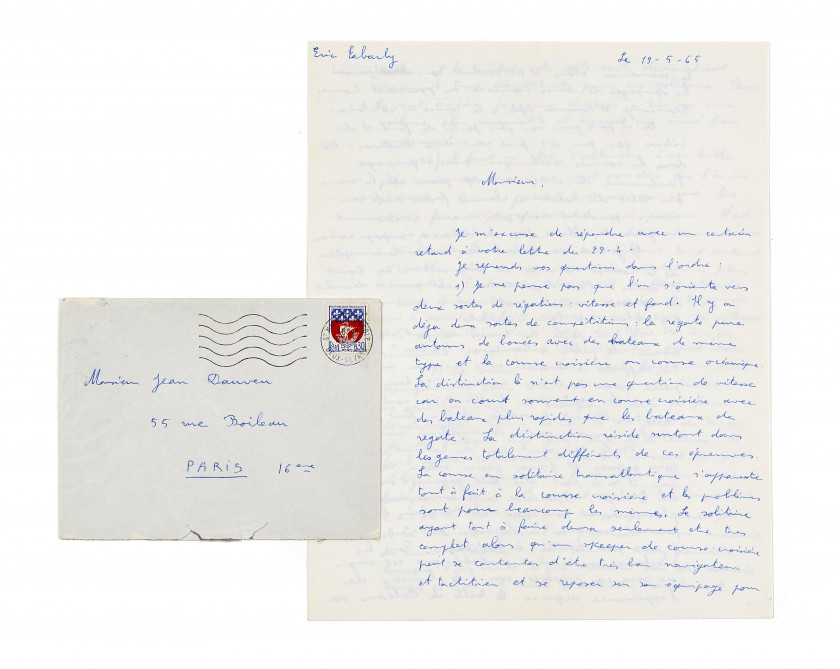 Eric Tabarly
Le 19-5-65
Monsieur,
Je m'excuse de répondre avec un certain
retard à votre lettre du 29-4-
Je reprends vos questions dans l'ordre :
1) Je ne pense pas que l'on s'oriente vers
deux sortes de régatiers : vitesse et fond. Il y a
déjà deux sortes de compétitions : la regate pure
autour de bouées avec des bateaux de même
type et la course croisière ou course océanique.
La distinction là n'est pas une question de vitesse
car on court souvent en course croisière avec
des bateaux plus rapides que les bateaux de
regate. La distinction réside surtout dans
les genres totalement différents de ces épreuves.
La course en solitaire transatlantique s'apparente
tout à fait à la course croisière et les problèmes
sont pour beaucoup les mêmes. Le solitaire
ayant tout à faire devra seulement être très
complet alors qu'un skeeper de course croisière
peut se contenter d'être très bon navigateur
et tactitien et se reposer sur son équipage pour
Monsieur Jean Dauven
55 rue Boileau
PARIS 16eme